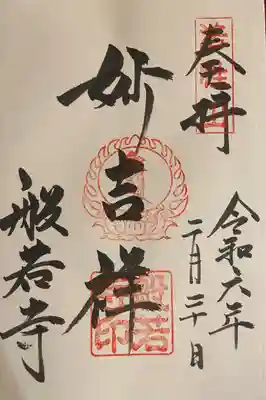 奉拝
令和六年
二月二十日
妙吉祥
般若寺